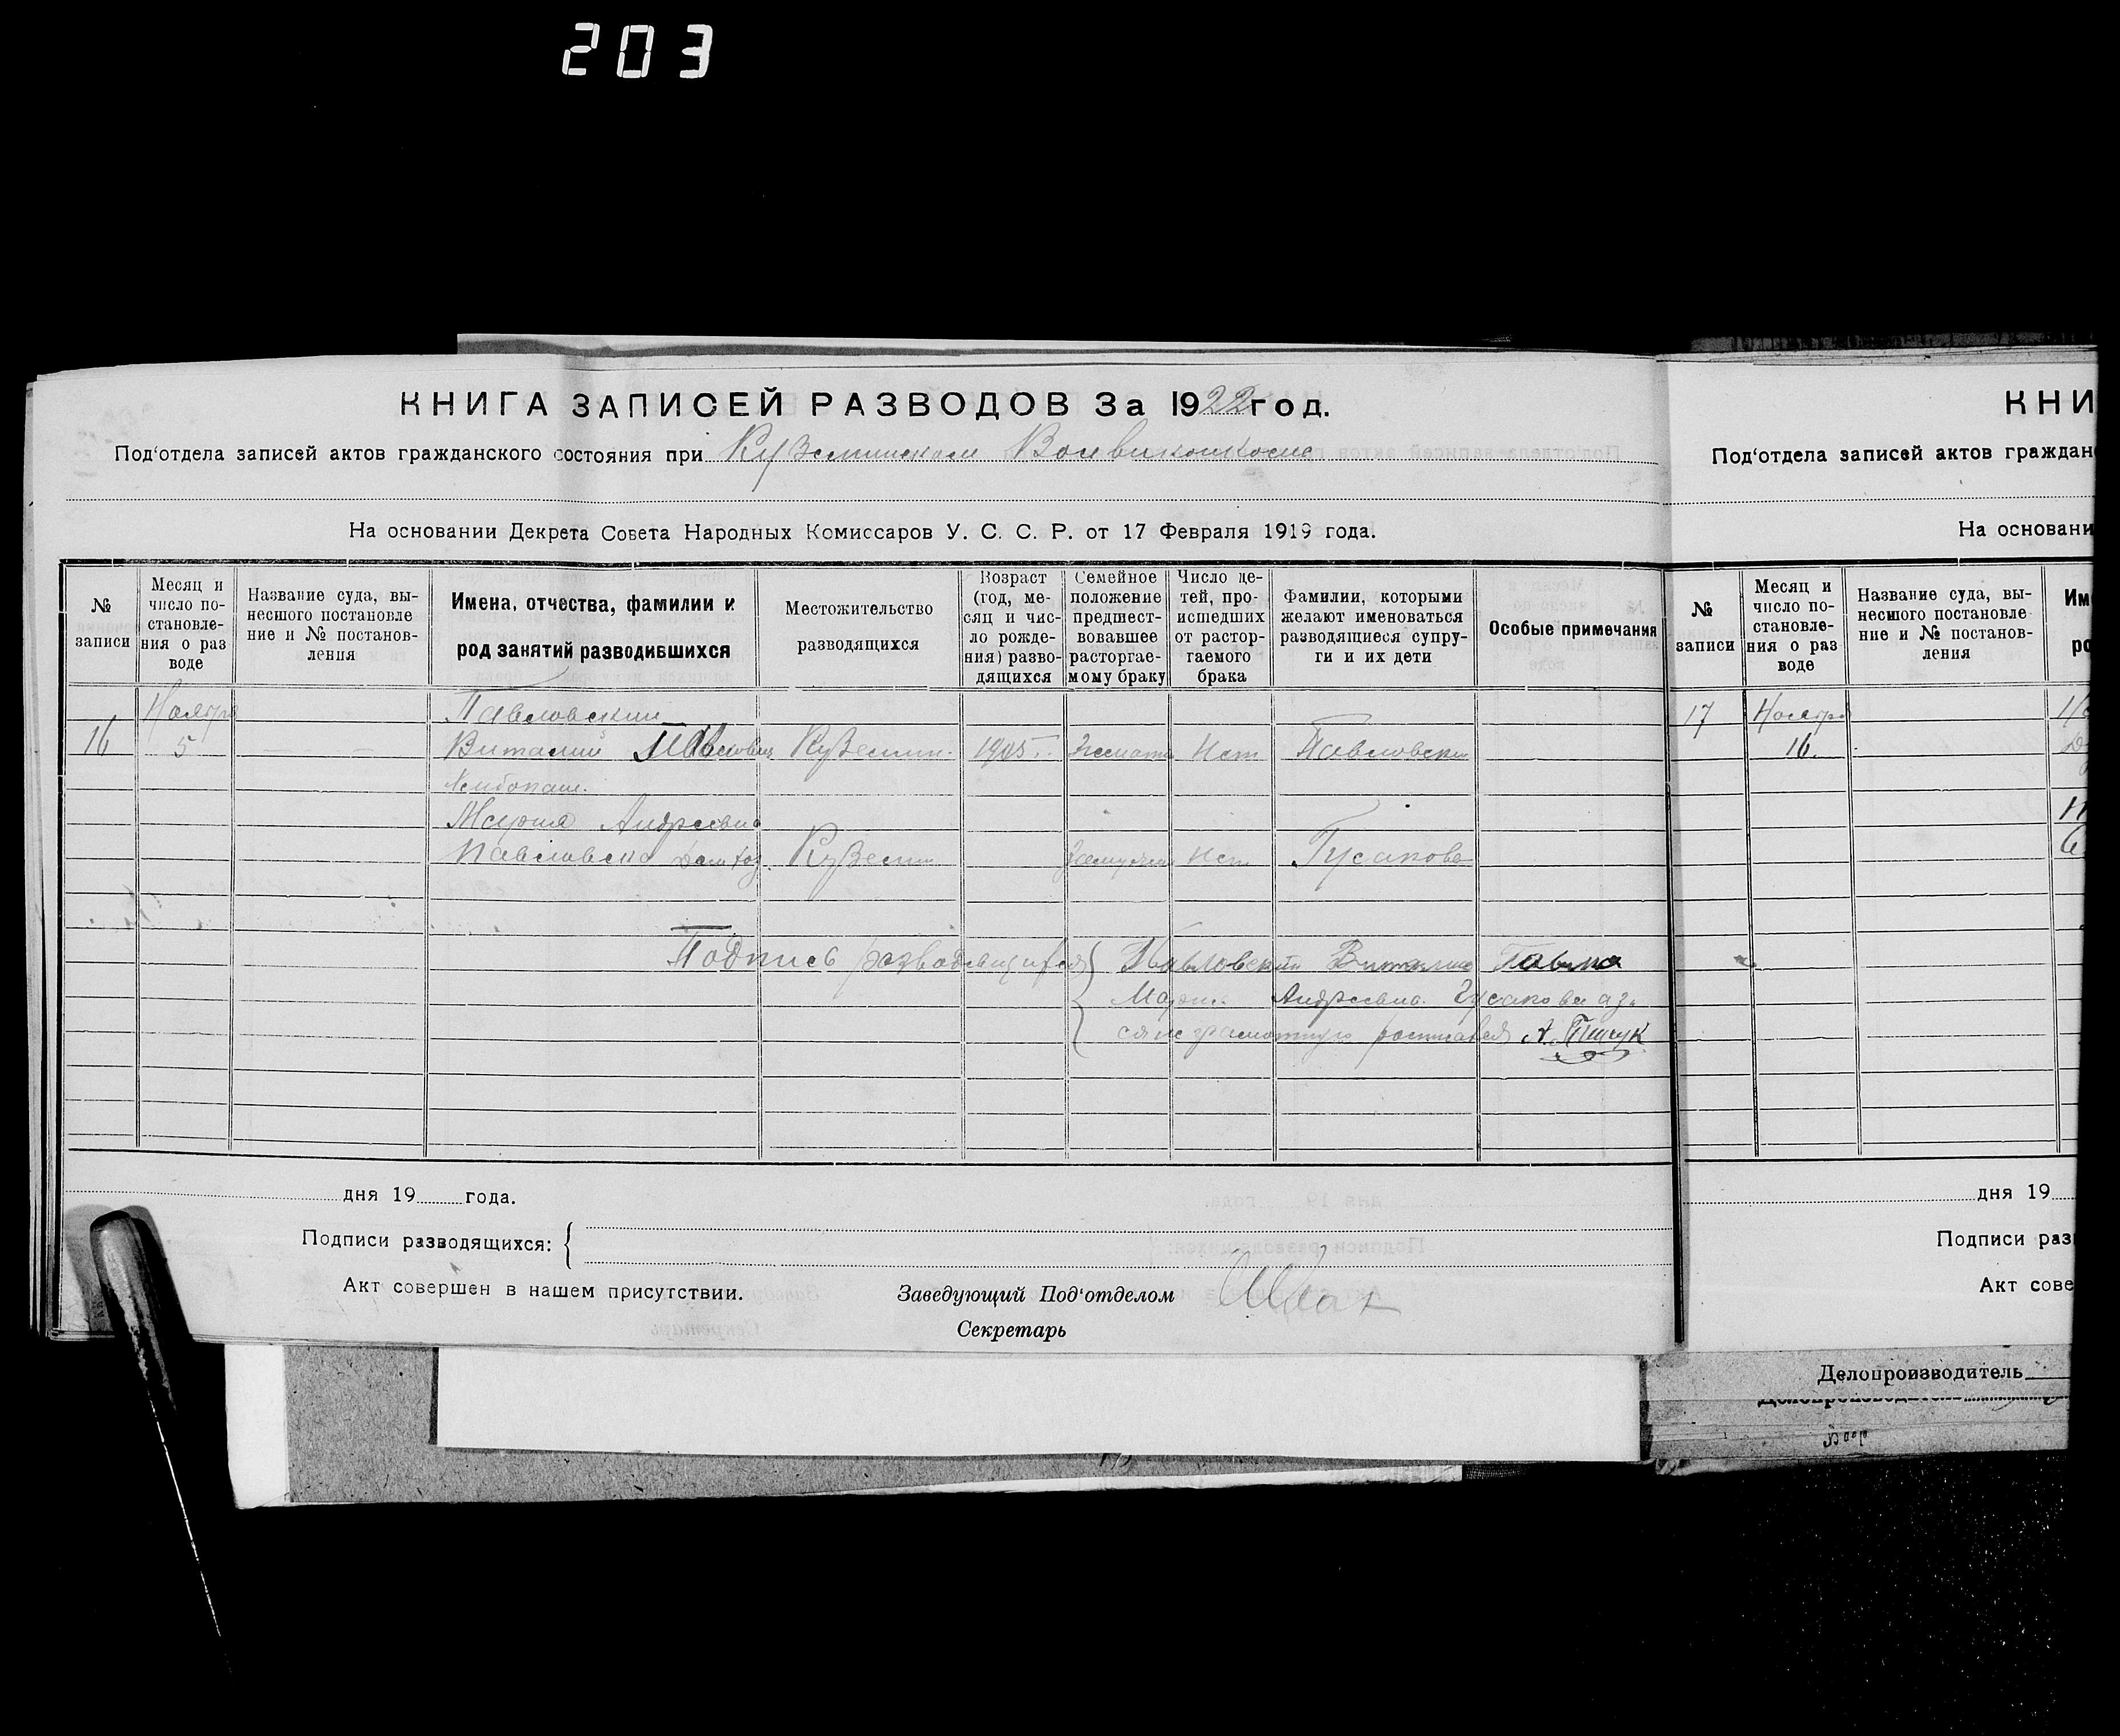 203
КНИГА ЗАПИСЕЙ РАЗВОДОВ За 1922 год.
Под'отдела записей актов гражданского состояния при Кузьминском Волвиконкоме
На основании Декрета Совета Народных Комиссаров У. С. С. Р. от 17 Февраля 1919 года.
№ записи
Месяц и число постановле-ния о раз воде
Название суда, вы-несшого постановле ние и № постанов-ления
Имена, отчества, фамилии и род занятий разводившихся
Местожительство разводящихся
Возраст (год, ме-сяц и чис-ло рожде-ния) разво-дящихся
Семейное положение предшест-вовавшее расторгае-мому браку
Число де-тей, про-исшедших от растор-гаемого брака
Фамилии, которыми желают именоваться разводящиеся супру-ги и их дети
Особые примечания
Ноября Павловский
16 5 — — Виталий Кузьмин. 1905 Нет Павловский
Мария Андреевна
Павловска Кузьмин Нет Гусакова
Подпись разводящихся { Павловский Виталий
Мария Андреевна Гусакова
А. Пщук
дня 19 года.
Подписи разводящихся: {
Акт совершен в нашем присутствии.
Заведующий Под'отделом
Секретарь
КНИ
Под'отдела записей актов граждан
На основани
№ записи
Месяц и число по-становле-ния о раз воде
Название суда, вы-несшого постановле ние и № постанов-ления
Им
ро
17 Ноября
16.
дня 19
Подписи раз
Акт сове
Делопроизводитель